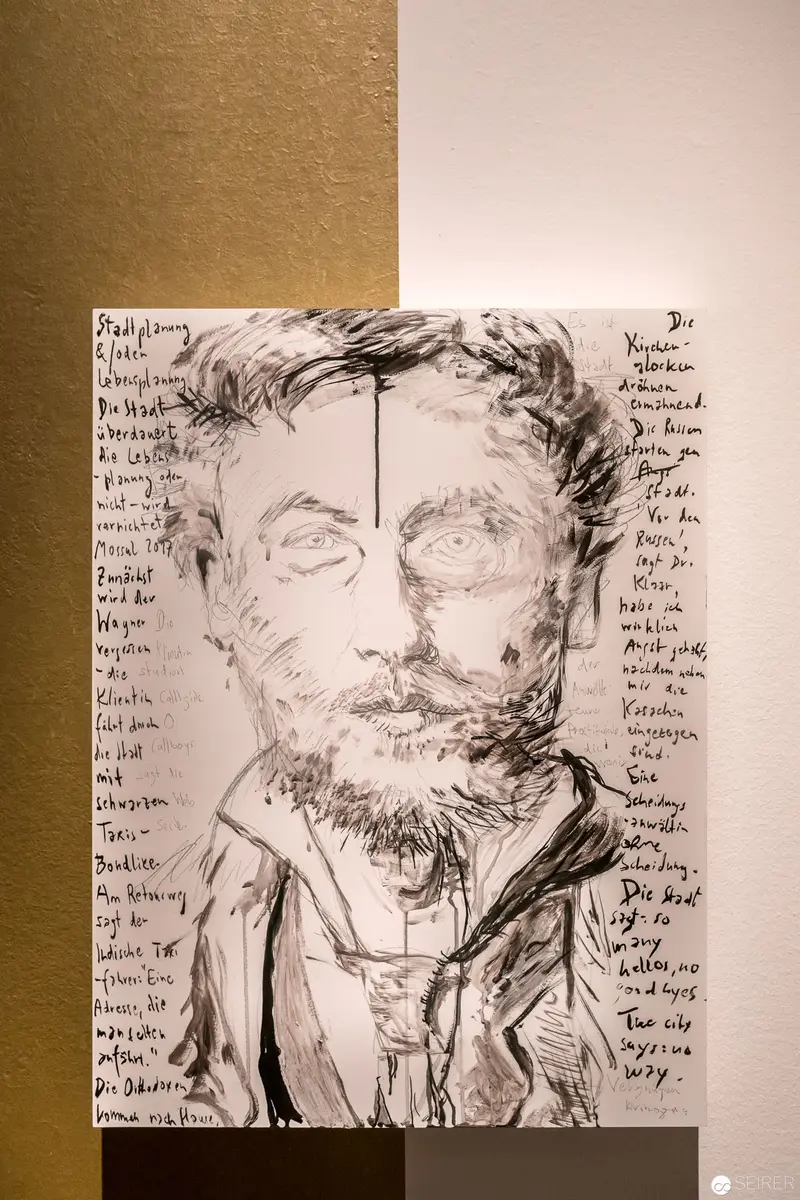 Stadtplanung
&/oder
Lebensplanung
Die Stadt
überdauert
die Lebens
-planung oder
nicht – wird
vernichtet
Mossul 2017
Zunächst
wird der
Wagner Die
vergessen
- die
Klientin Callgirls
fährt durch O
die Stadt Callboys
mit sagt die
schwarzen Web
Taxis – Seite
Bondlike.
Am Retourweg
sagt der
Indische Taxi
-fahrer: "Eine
Adresse, die
man selten
anfährt."
Die Orthodoxen
kommen nach Hause,
Es ist
die
Stadt
der
Anwälte
die
Die
Kirchen-
glocken
dröhnen
ermahnend.
Die Russen
starten gen
Stadt.
'Vor den
Russen',
sagt Dr.
Klaar,
habe ich
wirklich
Angst gehabt,
nachdem neben
mir die
Kasachen
eingezogen
sind.
Eine
Scheidungs
-anwältin
ohne
Scheidung.
Die Stadt
sagt: so
many
hellos, no
goodbyes.
The city
says: no
way.
SEIRER